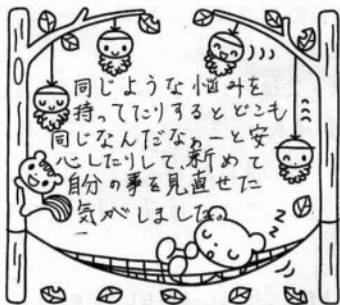 同じような悩みを
持ってたりするとどこも
同じなんだなぁーと安
心したりして、新めて
自分の事を見直せた
気がしました。
z z z